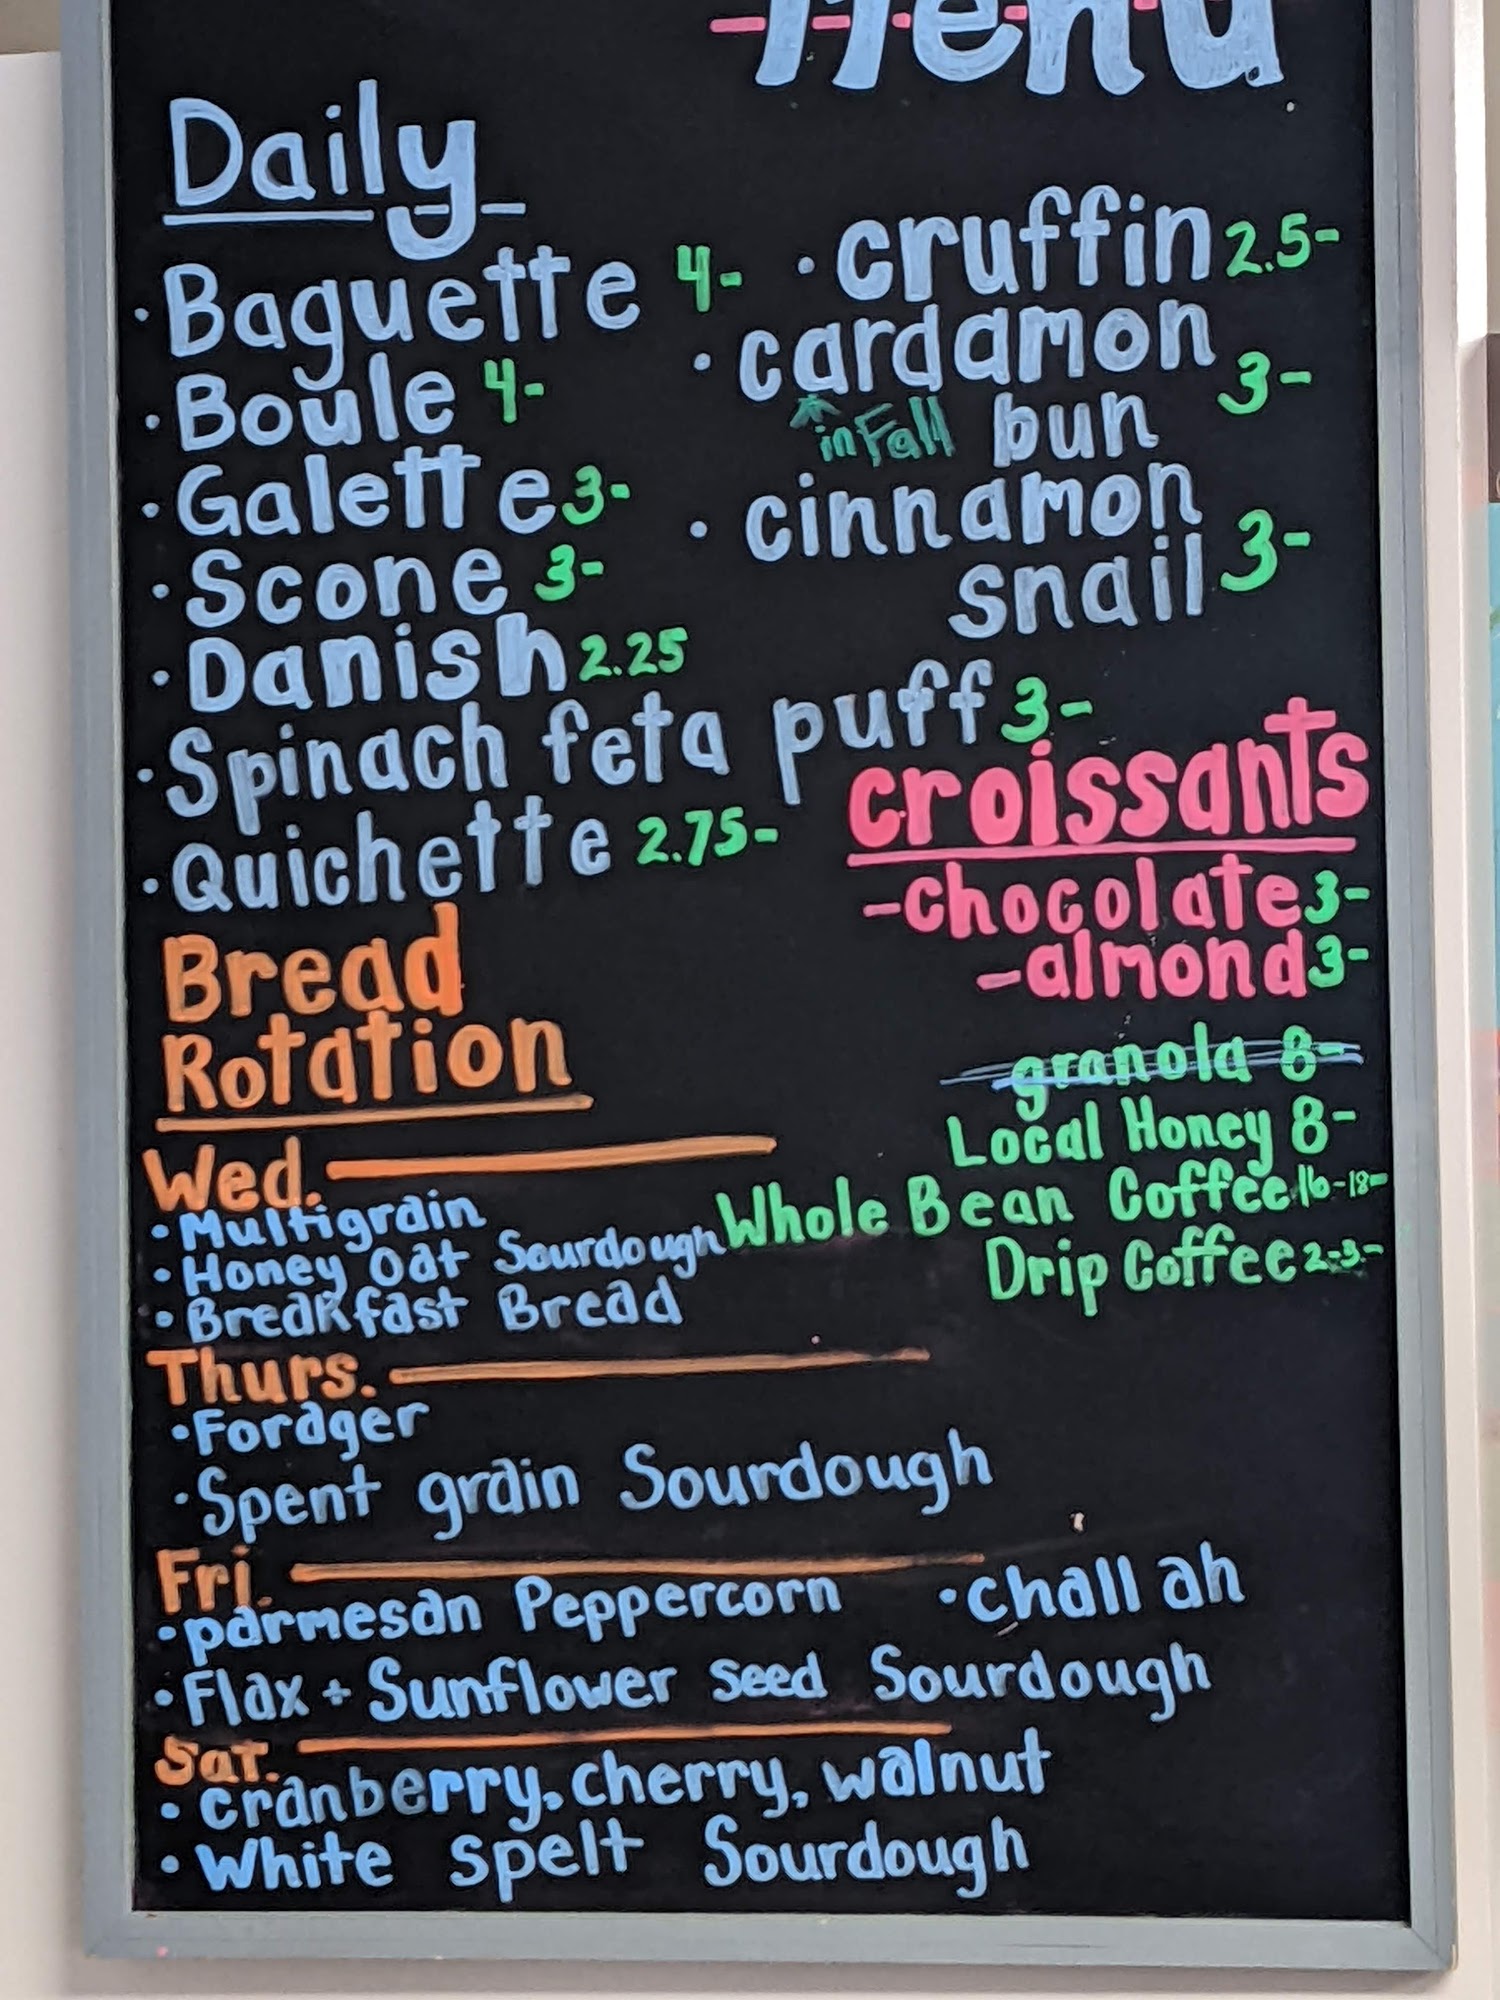 Menu
Daily
· Baguette 4-
· Boule 4-
· Galette 3-
· Scone 3-
· Danish 2.25
· Spinach feta puff 3-
· Quichette 2.75-
· cruffin 2.5-
· cardamon
in Fall bun 3-
· cinnamon
snail 3-
croissants
-chocolate 3-
-almond 3-
granola 8-
Local Honey 8-
Whole Bean Coffee 16-18-
Drip Coffee 2-3.-
Bread
Rotation
Wed.
· Multigrain
· Honey Oat Sourdough
· Breakfast Bread
Thurs.
· Forager
· Spent grain Sourdough
Fri.
· parmesan Peppercorn · challah
· Flax + Sunflower seed Sourdough
Sat.
· cranberry, cherry, walnut
· White spelt Sourdough